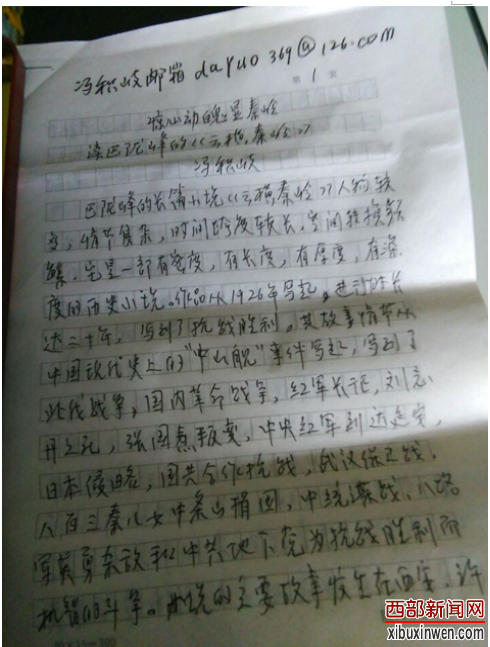 冯积岐邮箱 dayuo369@126.com
第 1 页
惊心动魄显秦岭
读巴陇峰的《云横秦岭》
冯积岐
巴陇峰的长篇小说《云横秦岭》人物较
多，情节复杂，时间跨度较长，空间转换频
繁。它是一部有密度，有长度，有厚度，有深
度的历史小说。作品从1926年写起，进行时长
达二十年，写到了抗战胜利。其故事情节从
中国现代史上的“中山舰”事件写起，写到了
北伐战争，国内革命战争，红军长征，刘志
丹之死，张国焘叛变，中央红军到达延安，
日本侵略，国共合作抗战，武汉保卫战，
八百三秦儿女中条山捐国，中统谍战，八路
军英勇杀敌和中共地下党为抗战胜利而
机智的斗争。小说的主要故事发生在西安，许
20×15=300
西部新闻网
xibuxinwen.com